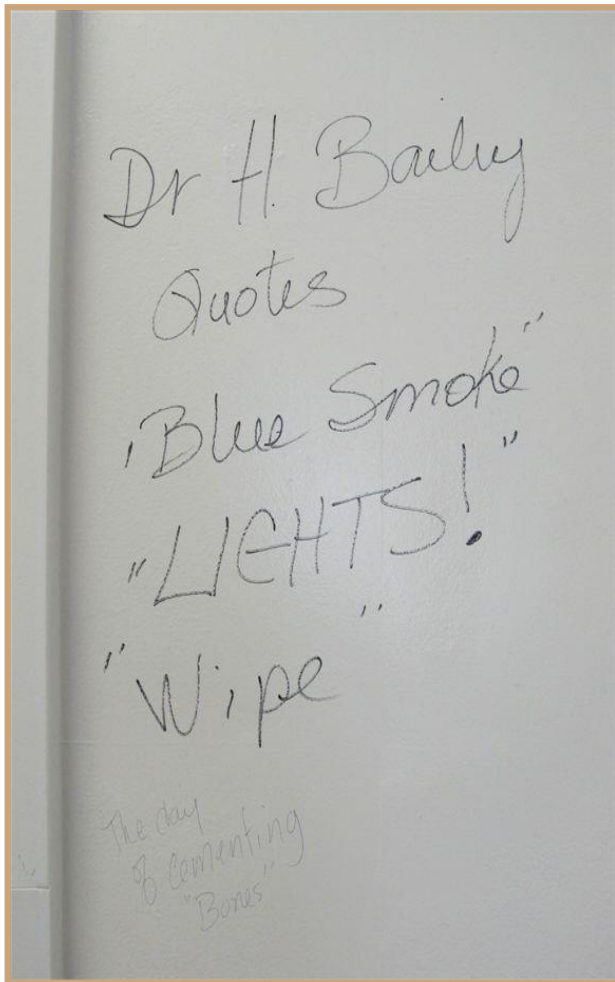 Dr H. Bailey
Quotes
"Blue Smoke"
"LIGHTS!"
"Wipe"
The day
of cementing
"Bones"